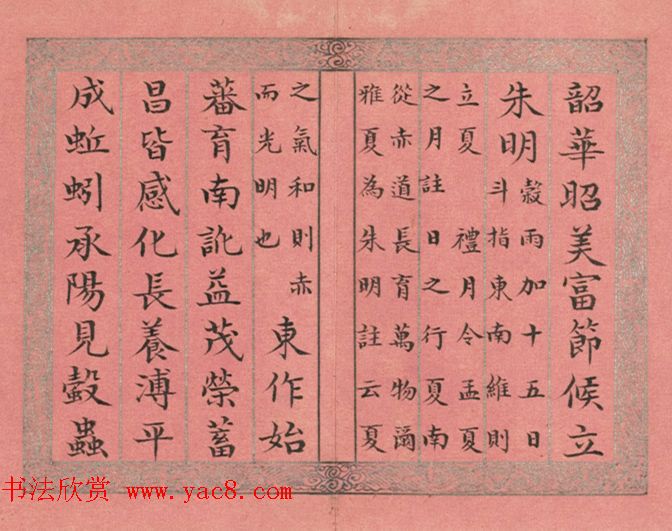 韶華昭美富節候立
朱明
穀雨加十五日
斗指東南維則
立夏 禮月令孟夏
之月註 日之行夏南
從赤道長育萬物爾
雅夏為朱明註云夏
之氣和則赤
而光明也
東作始
蕃育南訛益茂榮蓄
昌皆感化長養溥平
成蚯蚓承陽見螜蟲
书法欣赏 www.yac8.com